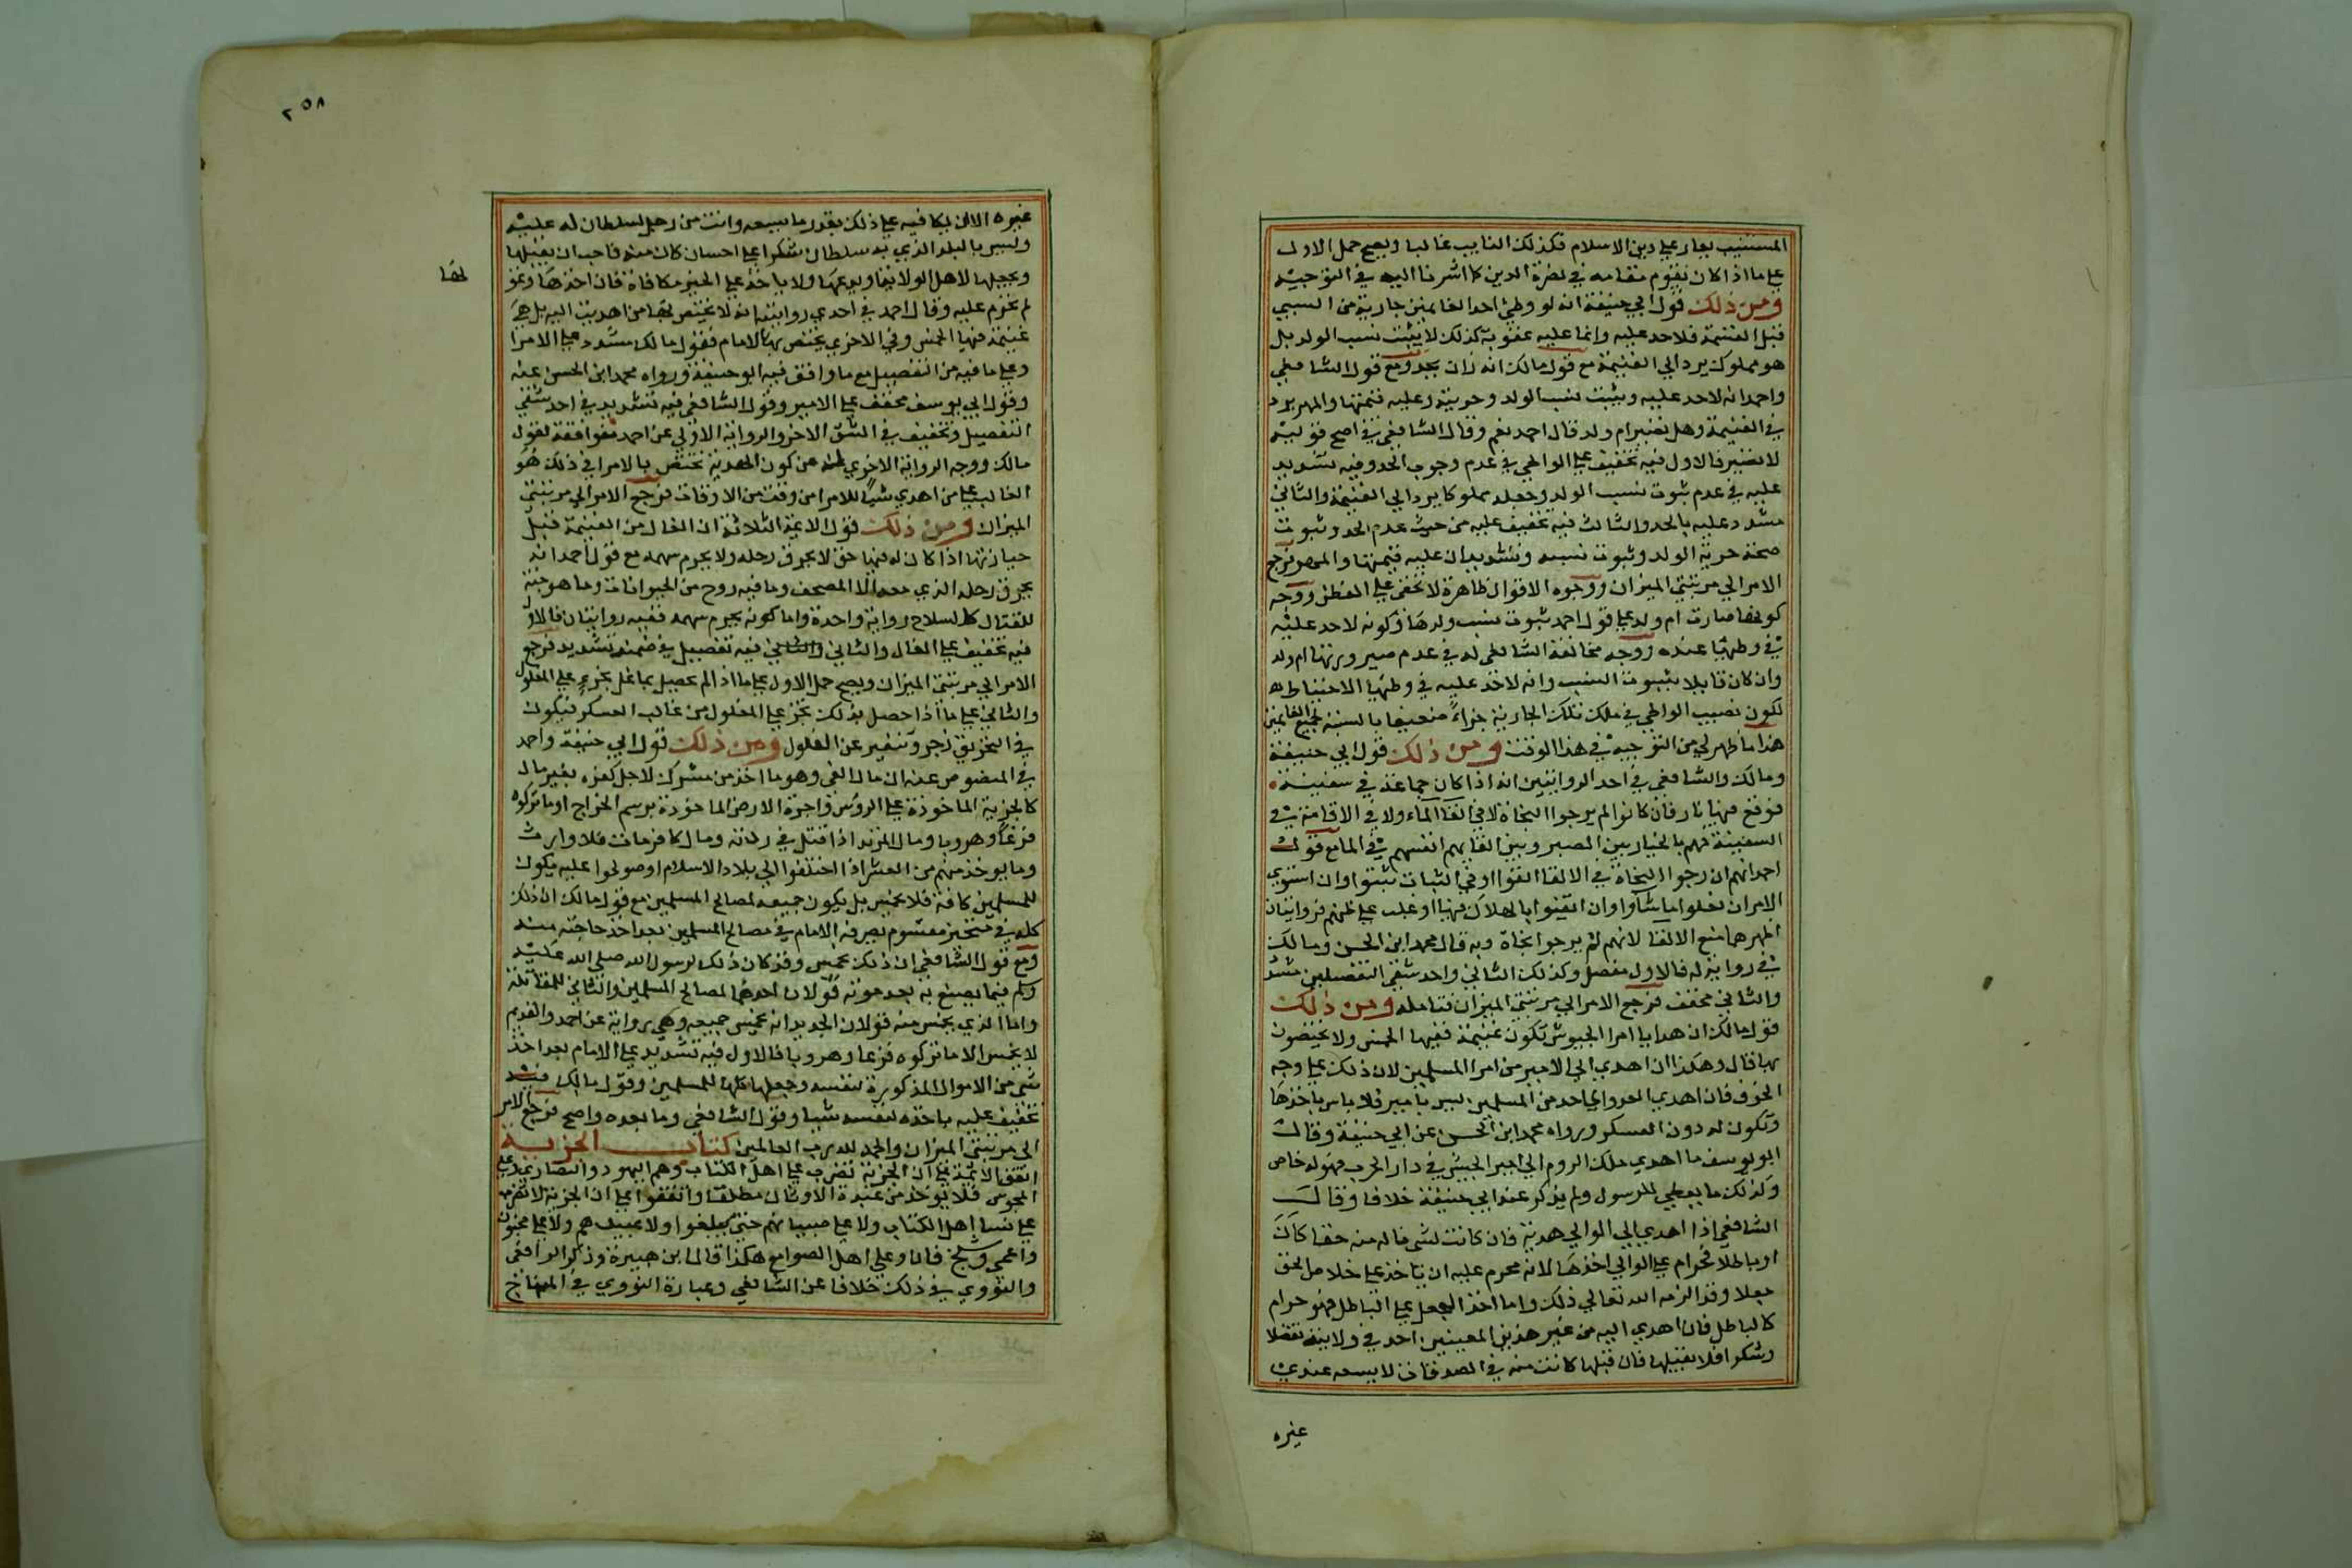 المستنيب يغار على دين الاسلام فكذلك النايب غالبا ويصح حمل الاول
على ما اذا كان يقوم مقامه في نصرة الدين كما اشرنا اليه في التوجيه
ومن ذلك قول ابي حنيفة انه لو وطئ احد الغانمين جارية من السبي
قبل القسمة فلا حد عليه وانما عليه عقوبة كذلك لا يثبت نسب الولد بل
هو مملوك يرد الي الغنيمة مع قول مالك انه زان يحد ومع قول الشافعي
واحمد انه لا حد عليه ويثبت نسب الولد وحريته وعليه قيمتها والمهر يرد
في الغنيمة وهل تصير ام ولد قال احمد نعم وقال الشافعي في اصح قوليه
لا تصير فالاول فيه تخفيف على الواطي في عدم وجوب الحد وفيه تشديد
عليه في عدم ثبوت نسب الولد وجعله مملوكا يرد الي الغنيمة والثاني
مشدد عليه بالحد والثالث فيه تخفيف عليه من حيث عدم الحد وثبوت
صحة حرية الولد وثبوت نسبه وتشديد ان عليه قيمتها والمهر فرجع
الامر الي مرتبتي الميزان ووجوه الاقوال ظاهرة لا تخفى على الفطن ووجه
كونها صارت ام ولد على قول احمد ثبوت نسب ولدها وكونه لا حد عليه
في وطئها عنده ووجه مخالفة الشافعي له في عدم صيرورتها ام ولد
وان كان قايلا بثبوت النسب وانه لا حد عليه في وطئها الاحتياط
لكون نصيب الواطي في ملك تلك الجارية جزاء ضعيفا بالنسبة لجميع الغانمين
هذا ما ظهر لي من التوجيه في هذا الوقت ومن ذلك قول ابي حنيفة
ومالك والشافعي في احد الروايتين انه اذا كان جماعة في سفينة
فوقع فيها نار فان كانوا لم يرجوا النجاة لا في القا الماء ولا في الاقامة في
السفينة فهم بالخيار بين الصبر وبين القايهم انفسهم في الما مع قول
احمد انهم ان رجوا النجاة في الالقا القوا او في الثبات ثبتوا وان استوي
الامران فعلوا ما شاوا وان ايقنوا بالهلاك فيها او غلب على ظنهم فروايتان
اظهرهما منع الالقا لانهم لم يرجوا نجاة وبه قال محمد ابن الحسن ومالك
في رواية له فالاول مفصل وكذلك الثاني واحد شقي التفصيلين مشدد
والثاني مخفف فرجع الامر الي مرتبتي الميزان فتامله ومن ذلك
قول مالك ان هدايا امرا الجيوش تكون غنيمة ففيها الخمس ولا يختصون
بها قال وهكذا ان اهدي الي الامير من امرا المسلمين لان ذلك على وجه
الخوف فان اهدي العدو الي احد من المسلمين ليس بامير فلا باس باخذها
وتكون له دون العسكر ورواه محمد ابن الحسن عن ابي حنيفة وقال
ابو يوسف ما اهدي ملك الروم الي امير الجيش في دار الحرب فهو له خاص
وكذلك ما يعطي للرسول ولم يذكر عند ابي حنيفة خلافا وقال
الشافعي اذا اهدي الي الوالي هدية فان كانت لشي ماله منه حقا كان
او باطلا فحرام على الوالي اخذها لانه محرم عليه ان ياخذ على خلاص الحق
جعلا وقد الزمه الله تعالي ذلك واما اخذ الجعل على الباطل فهو حرام
كالباطل فان اهدي اليه من غير هذين المعنيين احد في ولايته تفضلا
وشكرا فلا يقبلها فان قبلها كانت منه في الصدقات لا يسعه عندي
غيره
٢٥٨
غيره الا ان يكافيه على ذلك بقدر ما يسعه وانت من رجل لسلطان له عليه
وليس بالبلد الذي به سلطان شكرا على احسان كان منه فاحب ان يقبلها
ويجعلها لاهل الولاية او يدعها ولا ياخذ على الخير مكافاة فان اخذها وتمو
لها
لم تحرم عليه وقال احمد في احدي روايتيه انه لا يختص بها من اهديت اليه بل هي
غنيمة فيها الخمس وفي الاخري يختص بها الامام فقول مالك مشدد على الامرا
وعلى ما فيه من التفصيل مع ما وافق فيه ابو حنيفة ورواه محمد ابن الحسن عنه
وقول ابي يوسف مخفف على الامير وقول الشافعي فيه تشديد في احد شقي
التفصيل وتخفيف في الشق الاخر والرواية الاولي عن احمد موافقة لقول
مالك ووجه الرواية الاخري من كون الهدية تختص بالامرا في ذلك هو
الغالب على من اهدي شيا للامرا من وقت من الاوقات فرجع الامر الي مرتبتي
الميزان ومن ذلك قول الايمة الثلاثة ان الغال من الغنيمة قبل
حيازتها اذا كان له فيها حق لا يحرق رحله ولا يحرم سهمه مع قول احمد انه
يحرق رحله الذي معه الا المصحف وما فيه روح من الحيوانات وما هو جنة
للقتال كالسلاح رواية واحدة واما كونه يحرم سهمه ففيه روايتان فالاول
فيه تخفيف على الغال والثاني فيه تفصيل في ضمنه تشديد فرجع
الامر الي مرتبتي الميزان ويصح حمل الاول على ما اذا لم يحصل بما غل تجرء على الغلول
والثاني على ما اذا حصل بذلك تجرء على الغلول من غالب العسكر فيكون
في التحريق زجر وتنفير عن الغلول ومن ذلك قول ابي حنيفة واحمد
في المنصوص عنه ان مال الفي وهو ما اخذ من مشرك لاجل كفره بغير مال
كالجزية الماخوذة على الرؤس واجرة الارض الماخوذة برسم الخراج او ما تركوه
فزعا وهروبا ومال المرتد اذا قتل في ردته ومال كافر مات فلا وارث
وما يوخذ منهم من العشر اذا اختلفوا الي بلاد الاسلام او صولحوا عليه يكون
للمسلمين كافة فلا يخمس بل يكون جميعه لمصالح المسلمين مع قول مالك ان ذلك
كله في غير مقسوم يصرفه الامام في مصالح المسلمين بعد اخذ حاجته منه
ومع قول الشافعي ان ذلك يخمس وقد كان ذلك لرسول الله صلى الله عليه
وسلم فيما يصنع به بعد موته قولان احدهما لمصالح المسلمين والثاني للمقاتلة
واما الذي يخمس منه قولان الجديد انه يخمس جميعه وهي رواية عن احمد والقديم
لا يخمس الا ما تركوه فزعا وهروبا فالاول فيه تشديد على الامام بعد اخذ
شي من الاموال المذكورة لنفسه وجعلها كلها للمسلمين وقول مالك فيه
تخفيف عليه باخذه لنفسه شيا وقول الشافعي وما بعده واضح فرجع الامر
الى مرتبتي الميزان والحمد لله رب العالمين كتاب الجزية
اتفق الائمة على ان الجزية تضرب على اهل الكتاب وهم اليهود والنصاري وعلى
المجوس فلا يوخذ من عبدة الاوثان مطلقا واتفقوا على ان الجزية لا تضرب
على نسا اهل الكتاب ولا على صبيانهم حتى يبلغوا ولا عبيدهم ولا على مجنون
واعمى وشيخ فان وعلى اهل الصوامع هكذا قال ابن هبيرة وذكر الرافعي
والنووي في ذلك خلافا عن الشافعي وعبارة النووي في المنهاج